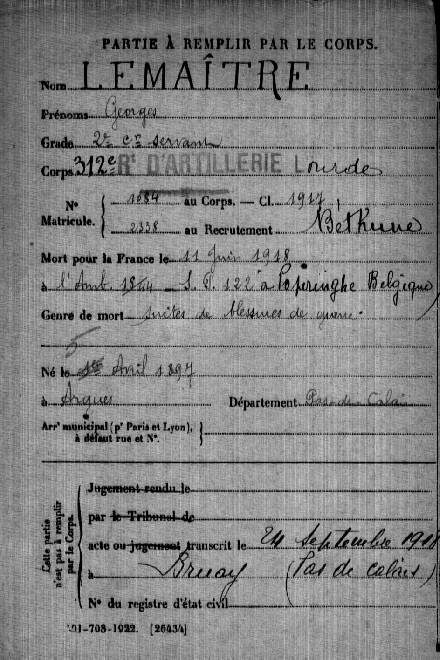 PARTIE À REMPLIR PAR LE CORPS.
Nom LEMAÎTRE
Prénoms Georges
Grade 2e cr servant
Corps 312e Rt D'ARTILLERIE Lourde
N° Matricule. { 1084 au Corps. — Cl. 1917
2338 au Recrutement Bethune
Mort pour la France le 11 Juin 1918
à l'Amb. S. P. 122 à Poperinghe Belgique
Genre de mort suites de blessures de guerre.
5
Né le Avril 1897
à Arques Département Pas-de-Calais
Arrt municipal (pr Paris et Lyon), à défaut rue et N°. }
Cette partie n'est pas à remplir par le Corps.
Jugement rendu le
par le Tribunal de
acte ou jugement transcrit le 24 septembre 1918
à Bruay (Pas de Calais)
N° du registre d'état civil
-708-1922. [26434]